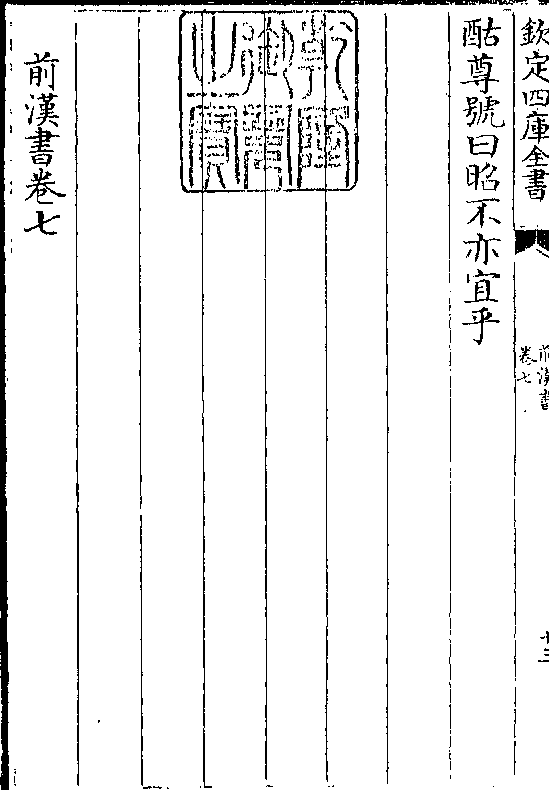 欽定四庫全書
前漢書
卷七
十三
酤尊號曰昭不亦宜乎
乾隆御覽之寶
前漢書卷七